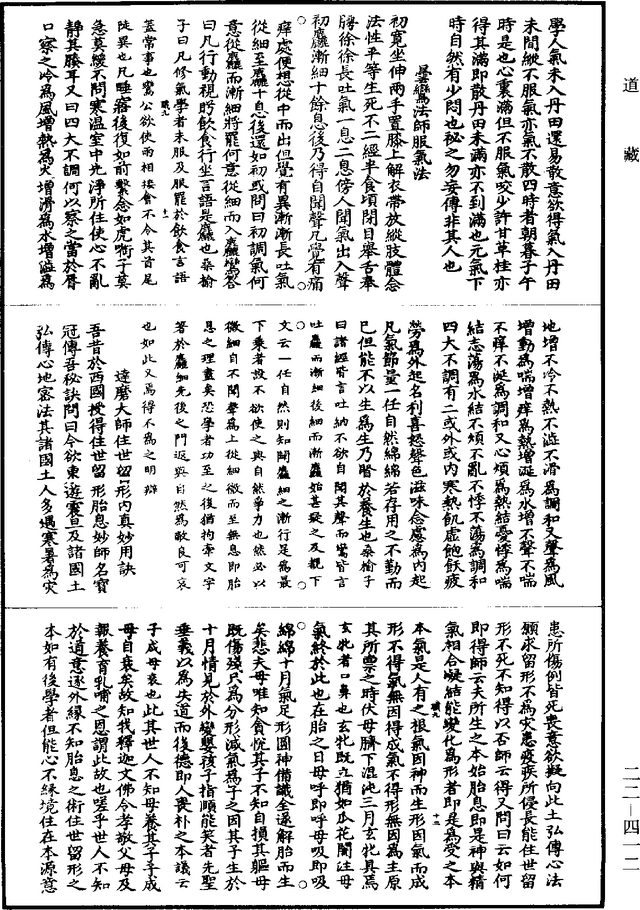 道藏
學人氣未入丹田還易散意欲得氣入丹田
未間縱不服氣亦氣不散四時者朝暮子午
時是也心裏滿但不服氣咬少許甘草桂亦
得其滿即散丹田未滿亦不到滿也元氣下
時自然有少悶也秘之勿妄傳非其人也
曇鸞法師服氣法
初寬坐伸兩手置膝上解衣帶放縱肢體念
法性平等生死不二經半食頃即閉目舉舌奉
腭徐徐長吐氣一息二息傍人聞氣出入聲
初麤漸細十餘息後乃得自聞聲凡覺有痛
痒處便想從中而出但覺有異漸漸長吐氣
從細至麤十息後還如初或問曰初調氣何
意從麤而漸細將罷何意從細而入麤鸞答
曰凡行動視眄飲食行坐言語是麤也桑榆
子曰凡修氣學者未服及服罷於飲食言語
蓋常事也鸞公欲使兩相接會不令其首尾
陡異也凡睡寤後復如前繫念如虎銜子莫
急莫緩不問寒溫室中先淨所住使心不亂
靜其滕耳又曰四大不調何以察之當於脣
口察之冷為風增熱為火增滑為水增澁為
地增不冷不熱不澁不滑為調和又聲為風
增動為喘增痒為熱增涎為水增不聲不喘
不痒不涎為調和又心煩為熱結憂悸為喘
結志蕩為水結不煩不亂不悸不蕩為調和
四大不調有二或外或內寒熱飢虛飽飫疲
勞為外起名利喜怒聲色滋味念慮為內起
凡氣節量一任自然綿綿若存用之不勤而
已但能不以生為生乃賢於養生也桑榆子
曰諸經皆言吐納不欲自聞其聲而鸞皆言
吐麤而漸細後細而漸麤始甚疑之及觀下
文云一任自然則知聞麤細之漸行是為最
下乘者設不欲使之與自然爭力也然必以
微細自不聞聲為上從細微而至無息即胎
息之理畫矣恐學者功至之後猶拘牽文字
著於麤細先後之門返與自然為敵良可哀
也如此又焉得不為之明辯
達磨大師住世留形內真妙用訣
吾昔於西國授得住世留形胎息妙師名寶
冠傳吾秘訣問曰今欲東遊震旦及諸國土
弘傳心地密法其諸國土人多遇寒暑為災
患所傷例皆死喪意欲擬向此土弘傳心法
願求留形不為灾患疫疾所侵長能住世留
形不死不知得以否師云得又問曰云如何
即得師云夫所生之本始胎息即是神與精
氣相合凝結能變化為形者即是為受之本
本氣是人有之根氣因神而生形因氣而成
形不得氣無因得成氣不得形無因為主原
其所禀之時伏母臍下混沌三月玄牝具焉
玄牝者口鼻也玄牝既立猶如瓜花闇注母
氣終於此也在胎之日母呼即呼母吸即吸
綿綿十月氣足形圓神備識全遂解胎而生
矣悲夫母唯知貪悅其子不知自損其軀母
既傷殘只為分形減氣為子之因其子生於
十月情見於外變嬰孩子指顧能笑者先聖
垂義以為失道而後德即人喪朴之本議云
子成母衰也此其世人不知母養其子子成
母自衰矣故知我釋迦文佛令孝敬父母及
報養育乳哺之恩謂此故也嗟乎世人不知
於道意逐外緣不知胎息之術住世留形之
本如有後學者但能心不緣境住在本源意
二二—四一二